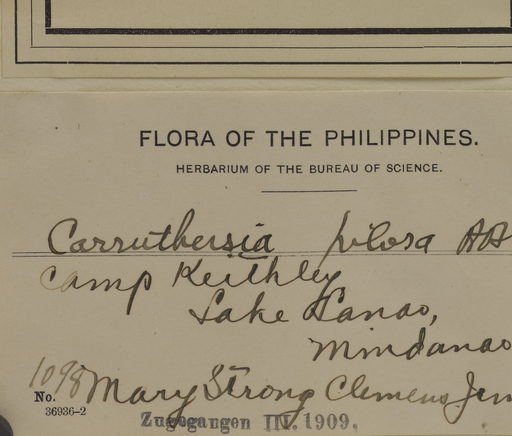 FLORA OF THE PHILIPPINES.
HERBARIUM OF THE BUREAU OF SCIENCE.
Carruthersia pilosa AA
Camp Keithley
Lake Lanao,
Mindanao
1098 Mary Strong Clemens Jan
No.
36936-2
Zugegangen III. 1909.